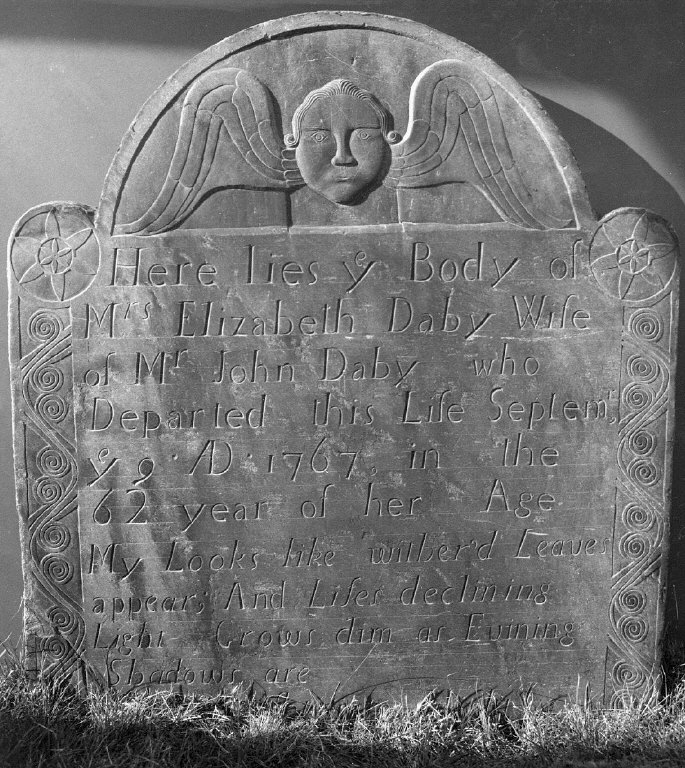 Here lies yᵉ Body of
Mʳˢ Elizabeth Daby Wife
of Mʳ John Daby who
Departed this Life Septemʳ,
yᵉ 9 · AD · 1767, in the
62 year of her Age
My Looks like wither'd Leaves
appear; And Lifes declining
Light Grows dim as Evining
Shadows are